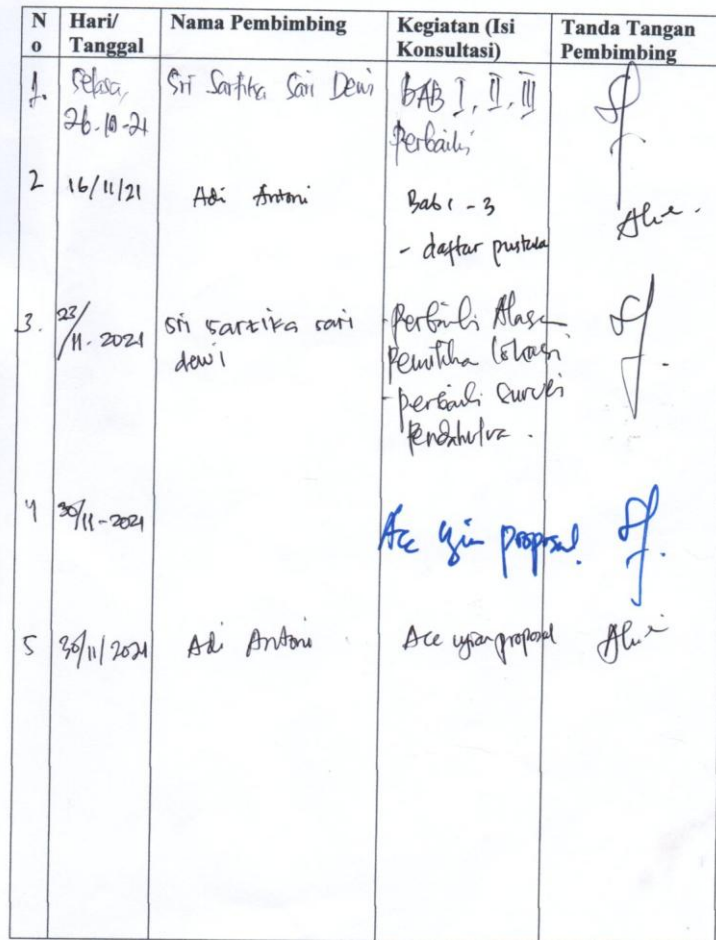 No Hari/ Tanggal Nama Pembimbing Kegiatan (Isi Konsultasi) Tanda Tangan Pembimbing
1. Selasa, Sri Sartika Sari Dewi BAB I, II, III
26-10-21 Perbaiki
2 16/11/21 Adi Antoni Bab 1 - 3
- daftar pustaka
3. 23/11-2021 Sri Sartika sari - Perbaiki
dewi lokasi
- perbaiki Survei
4 30/11-2021 Acc Ujian proposal.
5 30/11/2021 Adi Antoni Acc ujian proposal